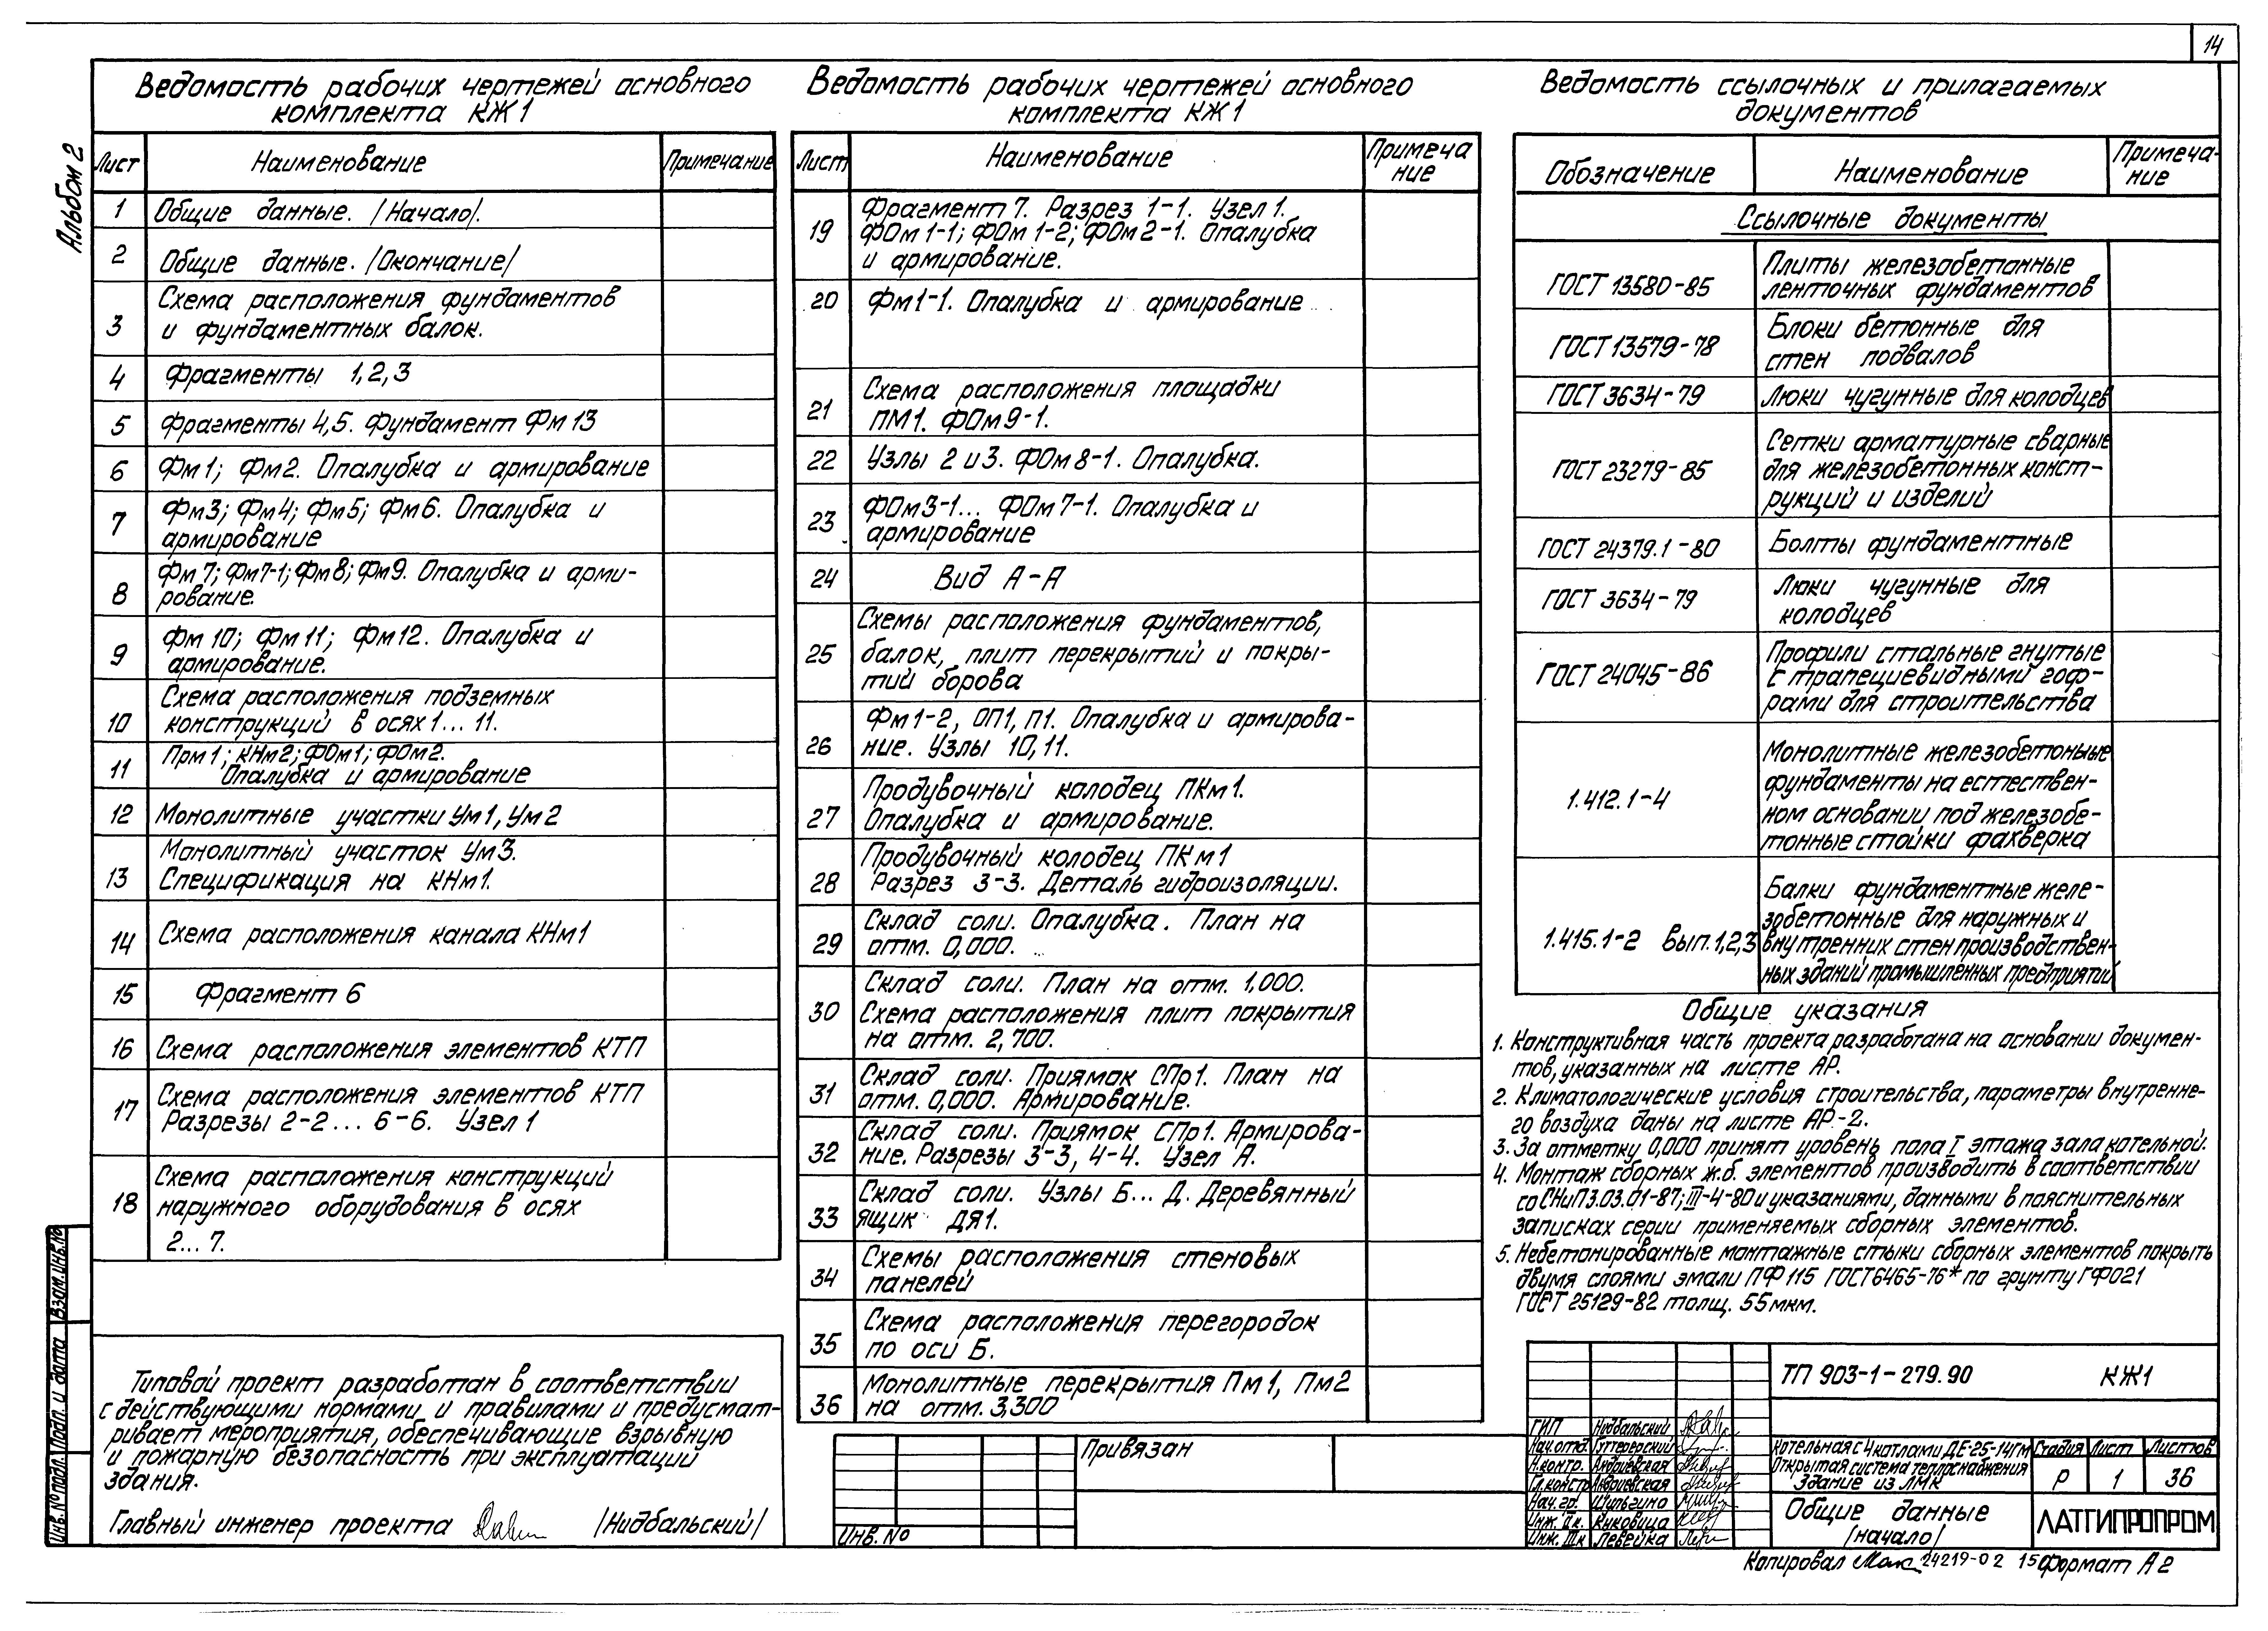 14
Альбом 2
Ведомость рабочих чертежей основного
комплекта КЖ1
Лист Наименование Примечание
1 Общие данные. /Начало/.
2 Общие данные. /Окончание/
3 Схема расположения фундаментов
и фундаментных балок.
4 Фрагменты 1,2,3
5 Фрагменты 4,5. Фундамент Фм13
6 Фм1; Фм2. Опалубка и армирование
7 Фм3; Фм4; Фм5; Фм6. Опалубка и
армирование
8 Фм7; Фм7-1; Фм8; Фм9. Опалубка и арми-
рование.
9 Фм10; Фм11; Фм12. Опалубка и
армирование.
10 Схема расположения подземных
конструкций в осях 1...11.
11 Прм1; КНм2; ФОм1; ФОм2.
Опалубка и армирование
12 Монолитные участки Ум1, Ум2
13 Монолитный участок Ум3.
Спецификация на КНм1.
14 Схема расположения канала КНм1
15 Фрагмент 6
16 Схема расположения элементов КТП
17 Схема расположения элементов КТП
Разрезы 2-2... 6-6. Узел 1
18 Схема расположения конструкций
наружного оборудования в осях
2...7.
Типовой проект разработан в соответствии
с действующими нормами и правилами и предусмат-
ривает мероприятия, обеспечивающие взрывную
и пожарную безопасность при эксплуатации
здания.
Главный инженер проекта /Нидбальский/
Ведомость рабочих чертежей основного
комплекта КЖ1
Лист Наименование Примеча
ние
19 Фрагмент 7. Разрез 1-1. Узел 1.
ФОм1-1; ФОм1-2; ФОм2-1. Опалубка
и армирование.
20 Фм1-1. Опалубка и армирование
21 Схема расположения площадки
ПМ1. ФОм9-1.
22 Узлы 2 и 3. ФОм8-1. Опалубка.
23 ФОм3-1... ФОм7-1. Опалубка и
армирование
24 Вид А-А
25 Схемы расположения фундаментов,
балок, плит перекрытий и покры-
тий борова
26 Фм1-2, ОП1, П1. Опалубка и армирова-
ние. Узлы 10, 11.
27 Продувочный колодец ПКм1.
Опалубка и армирование.
28 Продувочный колодец ПКм1
Разрез 3-3. Деталь гидроизоляции.
29 Склад соли. Опалубка. План на
отм. 0,000.
30 Склад соли. План на отм. 1,000.
Схема расположения плит покрытия
на отм. 2,700.
31 Склад соли. Приямок СПр1. План на
отм. 0,000. Армирование.
32 Склад соли. Приямок СПр1. Армирова-
ние. Разрезы 3-3, 4-4. Узел А.
33 Склад соли. Узлы Б... Д. Деревянный
ящик ДЯ1.
34 Схемы расположения стеновых
панелей
35 Схема расположения перегородок
по оси Б.
36 Монолитные перекрытия Пм1, Пм2
на отм. 3,300
Привязан
Инв. №
Ведомость ссылочных и прилагаемых
документов
Обозначение Наименование Примеча-
ние
Ссылочные документы
ГОСТ 13580-85 Плиты железобетонные
ленточных фундаментов
ГОСТ 13579-78 Блоки бетонные для
стен подвалов
ГОСТ 3634-79 Люки чугунные для колодцев
ГОСТ 23279-85 Сетки арматурные сварные
для железобетонных конст-
рукций и изделий
ГОСТ 24379.1-80 Болты фундаментные
ГОСТ 3634-79 Люки чугунные для
колодцев
ГОСТ 24045-86 Профили стальные гнутые
с трапециевидными гоф-
рами для строительства
1.412.1-4 Монолитные железобетонные
фундаменты на естествен-
ном основании под железобе-
тонные стойки фахверка
1.415.1-2 Вып.1,2,3 Балки фундаментные желе-
зобетонные для наружных и
внутренних стен производствен-
ных зданий промышленных предприятий
Общие указания
1. Конструктивная часть проекта разработана на основании докумен-
тов, указанных на листе АР.
2. Климатологические условия строительства, параметры внутренне-
го воздуха даны на листе АР-2.
3. За отметку 0,000 принят уровень пола I этажа зала котельной.
4. Монтаж сборных ж.б. элементов производить в соответствии
со СНиП 3.03.01-87; III-4-80 и указаниями, данными в пояснительных
записках серии применяемых сборных элементов.
5. Небетонированные монтажные стыки сборных элементов покрыть
двумя слоями эмали ПФ115 ГОСТ 6465-76* по грунту ГФ021
ГОСТ 25129-82 толщ. 55мкм.
ТП 903-1-279.90 КЖ1
ГИП Нидбальский
Нач.отд.
Н.контр. Андриевская
Гл.констр Андриевская
Нач.гр. Шульгина
Инж. II к. Киковица
Инж. III к Левейка
Котельная с 4 котлами ДЕ-25-14ГМ
Открытая система теплоснабжения
Здание из ЛМК
Стадия Лист Листов
Р 1 36
Общие данные
/начало/
ЛАТГИПРОПРОМ
Копировал 24219-02 15 Формат А2
Взам.инв.№
Подп. и дата
Инв.№ подл.